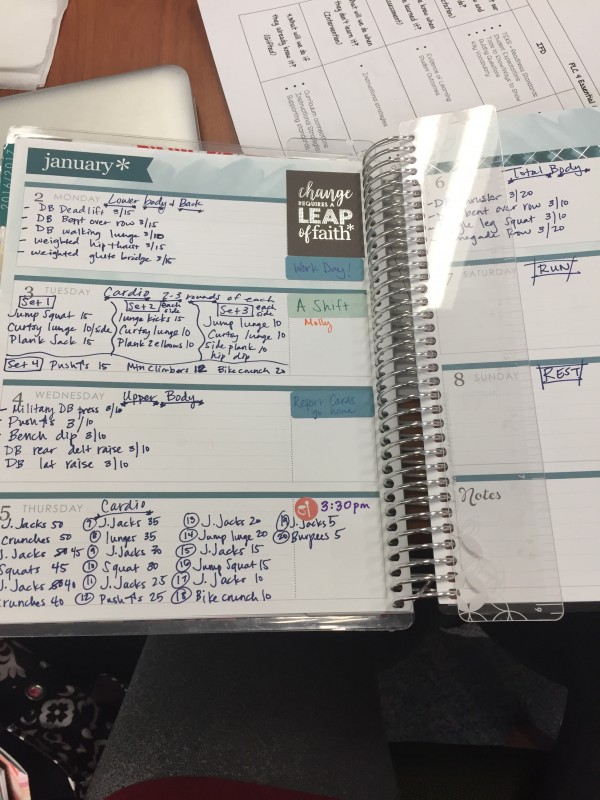 4. What will we do if they already know it? (GIfted)
What will we do when they don't learn it? (Intervention)
Instructional strategies
Evidence of Learning
Student Outcomes
TEKS - Readiness
Key Vocabulary
IFD
PLC 4 Essential
2016/2017
january*
2 MONDAY Lower body & Back
- DB Deadlift 3/15
- DB Bent over row 3/15
- DB walking lunge
- weighted hip thrust 3/15
- weighted glute bridge 3/15
change
REQUIRES A
LEAP
of faith*
Work Day!
3 TUESDAY Cardio 2-3 rounds of each
Set 1
Jump Squat 15
Curtsy lunge 10/side
Plank Jack 15
Set 2 each side
lunge kicks 15
Curtsy lunge 10
Plank 2 elbows 10
Set 3 each side
Jump lunge 10
Curtsy lunge 10
side plank 10
hip dip
Set 4 Push↑s 15 Mtn Climbers 12 Bike crunch 20
A Shift
Molly
4 WEDNESDAY Upper Body
- Military DB press
- Push↑s 3/10
- Bench dip 3/10
DB rear delt raise 3/10
DB lat raise 3/10
Report Cards
go home
5 THURSDAY Cardio
J. Jacks 50
Crunches 50
J. Jacks 45
Squats 45
J. Jacks 40
runches 40
7 J. Jacks 35
8 lunges 35
9 J. Jacks 30
10 Squat 30
11 J. Jacks 25
12 Push↑s 25
13 J. Jacks 20
14 Jump lunge 20
15 J. Jacks 15
16 Jump Squat 15
17 J. Jacks 10
18 Bike crunch 10
19 J. Jacks 5
20 Burpees 5
3:30pm
6 Total Body
3/20
bent over row 3/10
leg Squat 3/10
Row 3/20
7 SATURDAY RUN
8 SUNDAY REST
Notes